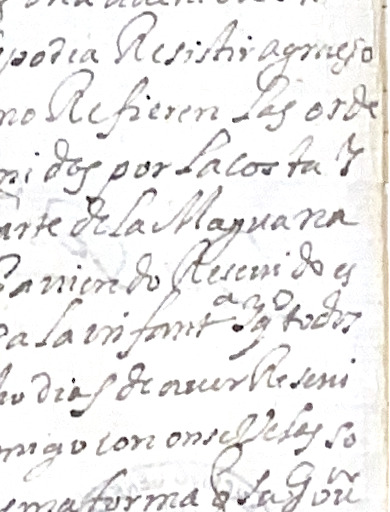 podia Resistir agrueso
no Refieren Las orde
nidos por La costa Y
arte de la Maguana
aviendo Reseuido es
a la infantª y todos
ho dias de auer Reseui
migo con onse Velas so
sma forma q la Gouʳ